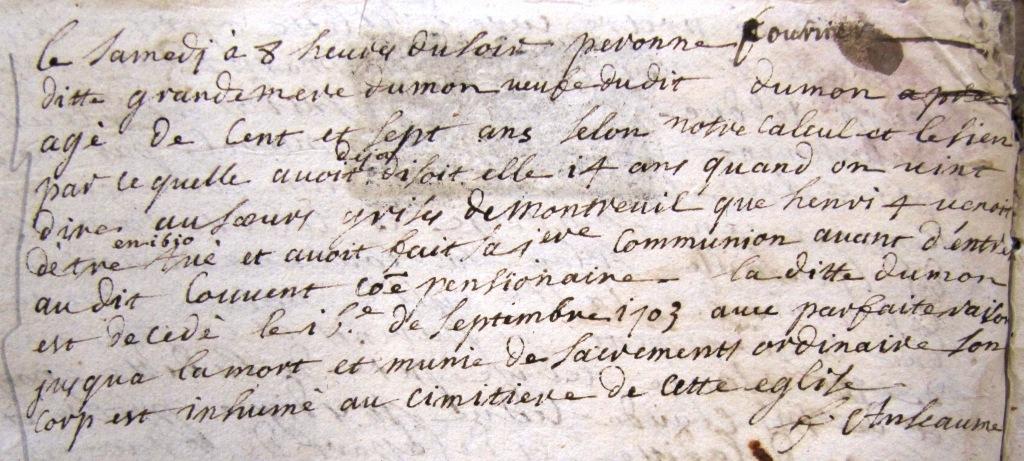 le samedj à 8 heures du soir peronne fourrier
ditte grandemere dumon veufe dudit dumon apres
agé de Cent et sept ans selon notre calcul et le sien
par ce quelle avoit deja disoit elle 14 ans quand on vint
dire au sœurs grises de Montreuil que henri 4 venoit
dètre en 1610 tué et avoit fait sa 1ere Communion avant d'entrer
au dit Couvent coē pensionaire la ditte dumon
est decedé le 15.e de septembre 1703 avec parfaite raison
jusqua la mort et munie de sacrements ordinaire son
corp est inhumé au cimitiere de cette eglise
f Anseaume